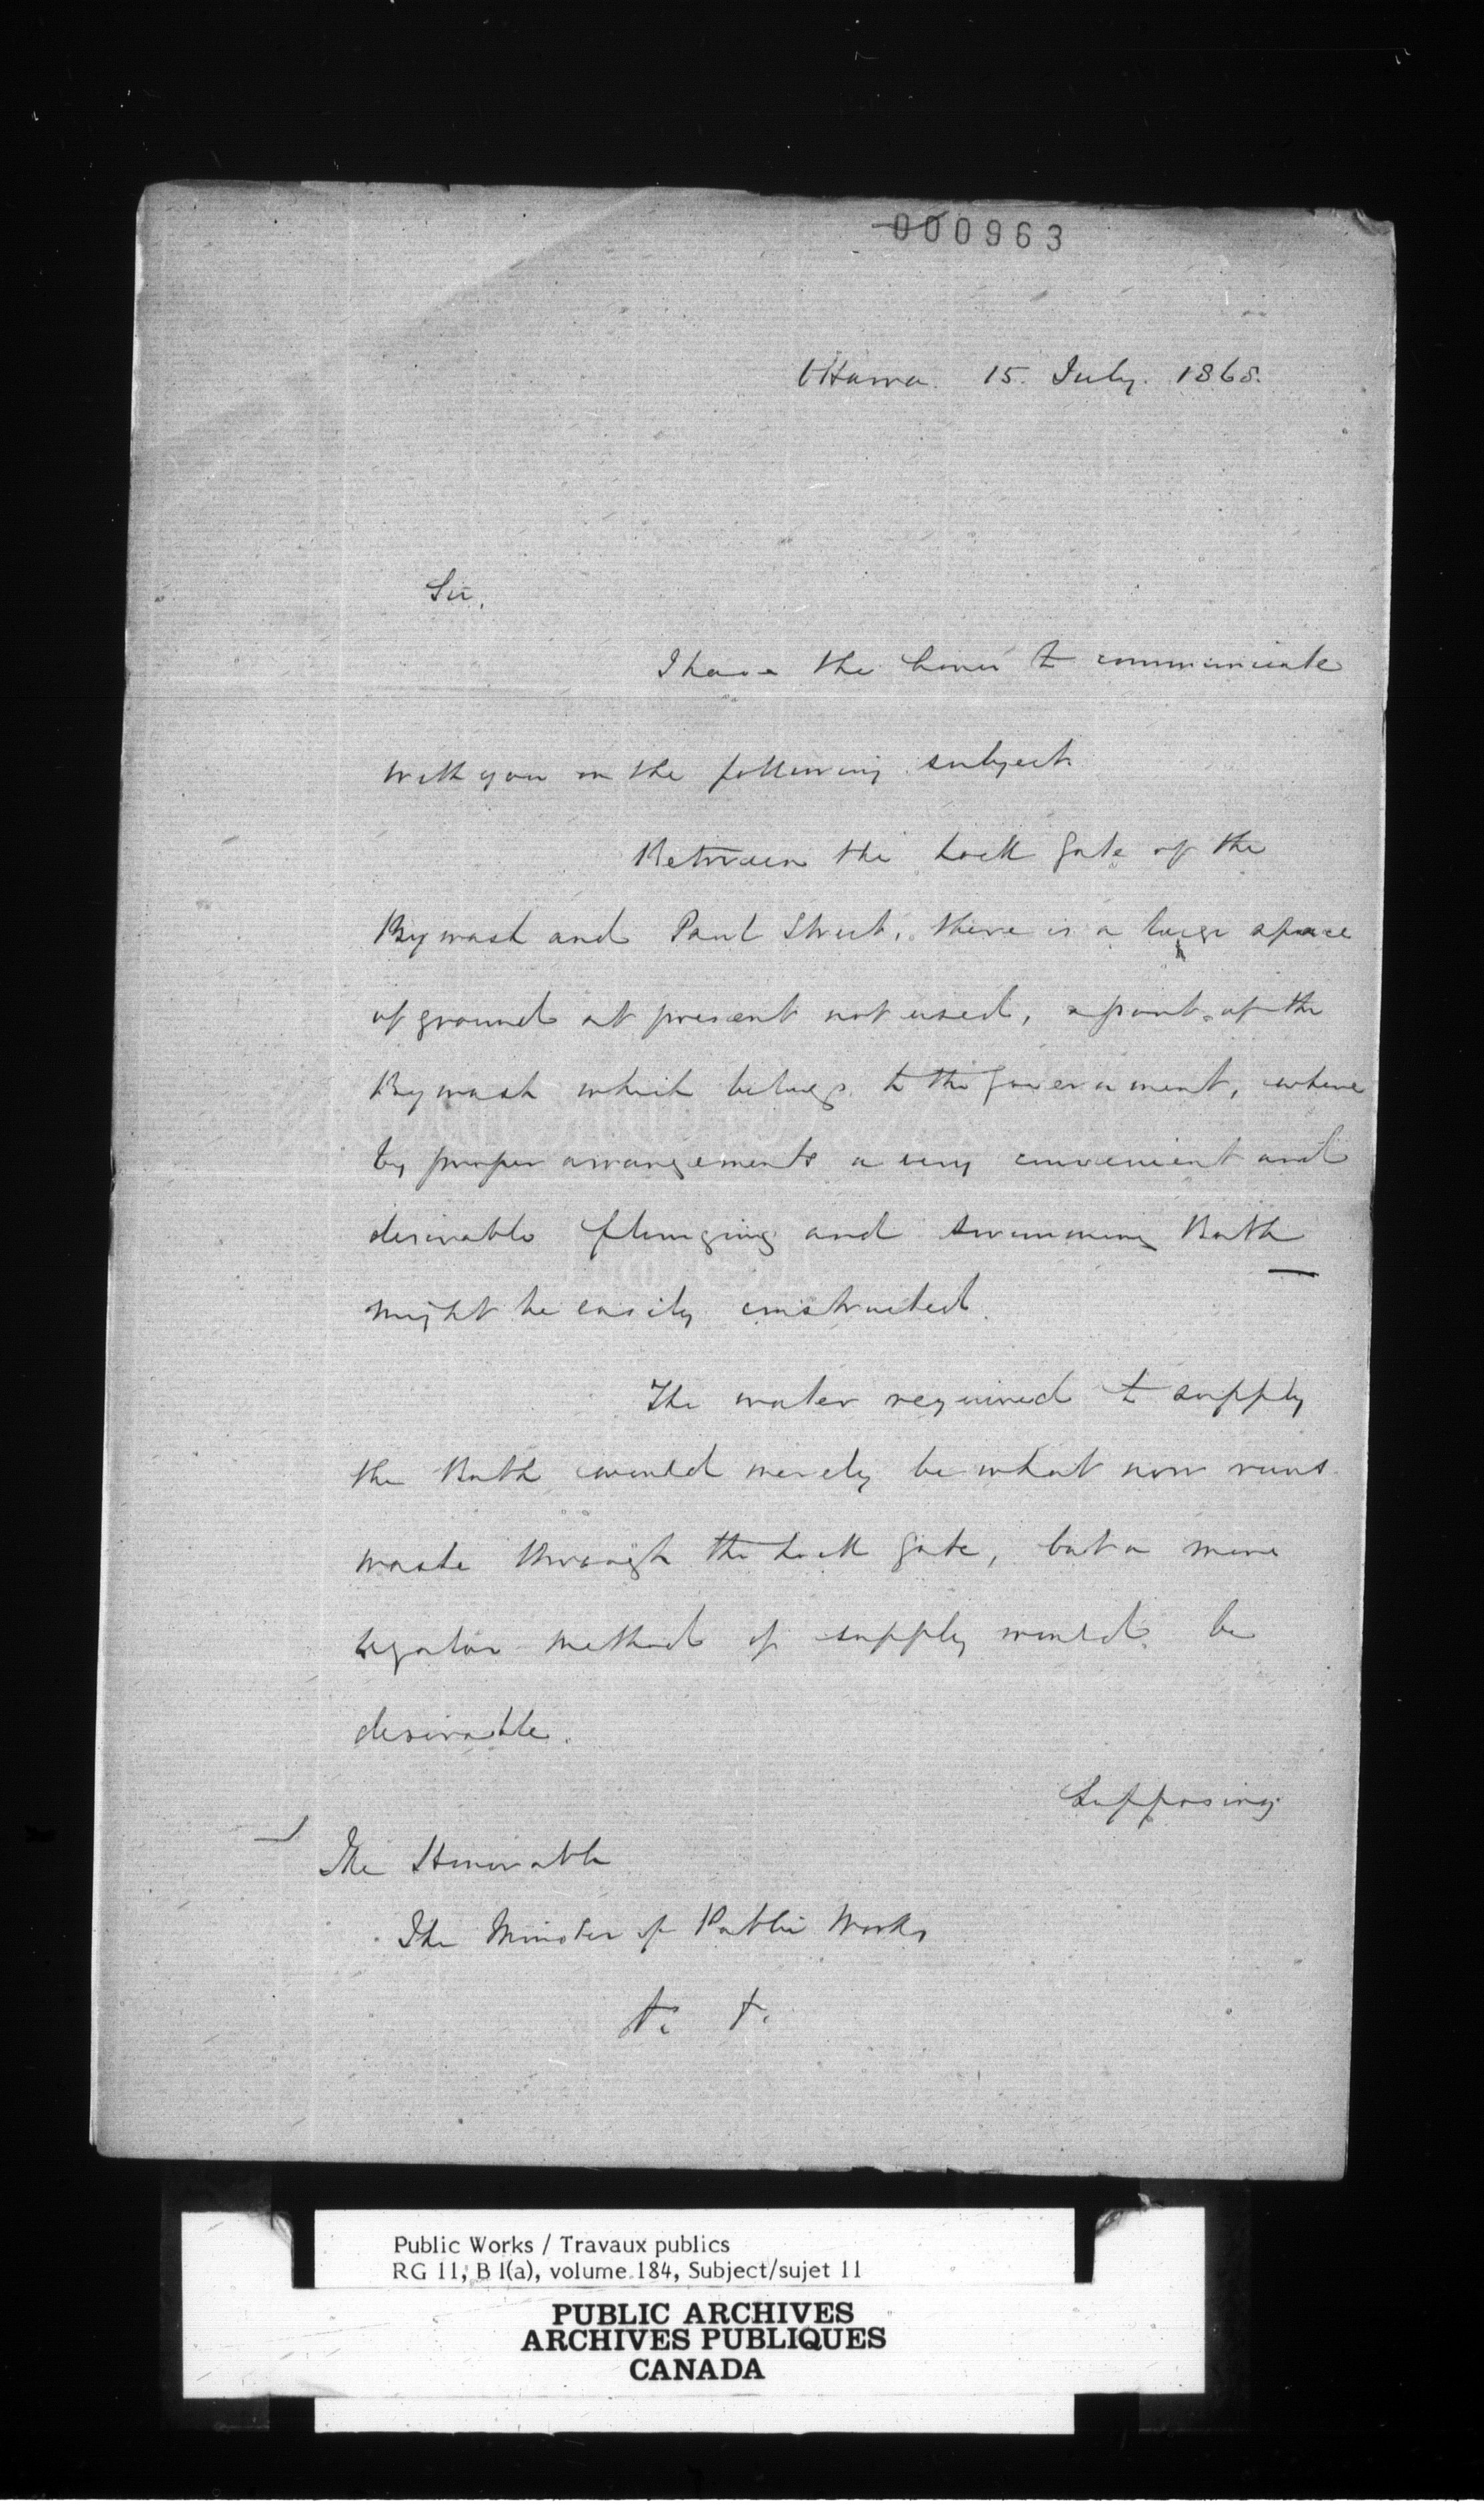 000963
Ottawa. 15. July. 1868.
Sir,
I have the honor to communicate
with you on the following subject.
Between the Lock Gate of the
Bywash and Paul Street, there is a large space
of ground at present not used, a part of the
Bywash which belongs to the Government, where
by proper arrangements a very convenient and
desirable plunging and swimming Bath
might be easily constructed.
The water required to supply
the Bath would merely be what now runs
waste through the Lock Gate, but a more
regular method of supply would be
desirable.
Supposing
The Honorable
The Minister of Public Works
Public Works / Travaux publics
RG 11, B 1(a), volume 184, Subject/sujet 11
PUBLIC ARCHIVES
ARCHIVES PUBLIQUES
CANADA